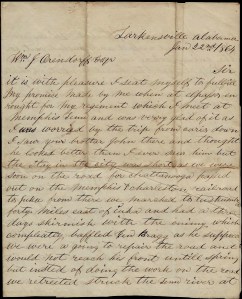 Larkensville Alabama
Jan 22nd/64
Wm J. Orendorff Esqr
Sir
it is with pleasure I seat myself to fulfill
My promise made by me when at
for my regiment which I meet at
Memphis Tenn and was very glad of it as
I was worried by the trip from cairo down
I saw your brother John there and thought
he looked better than I ever saw him but
the stay in the city was short as we were
soon on the road for chattanooga
out on the Memphis & Charleston railroad
to juka from there we marched to
forty miles east of iuka and had a three
days skirmish with the enimy which
completely baffled Gen Bragg as he supposed
we were a going to repair the road and
would not reach his front untill spring
but insted of doing the work on the road
we retreated struck the river at